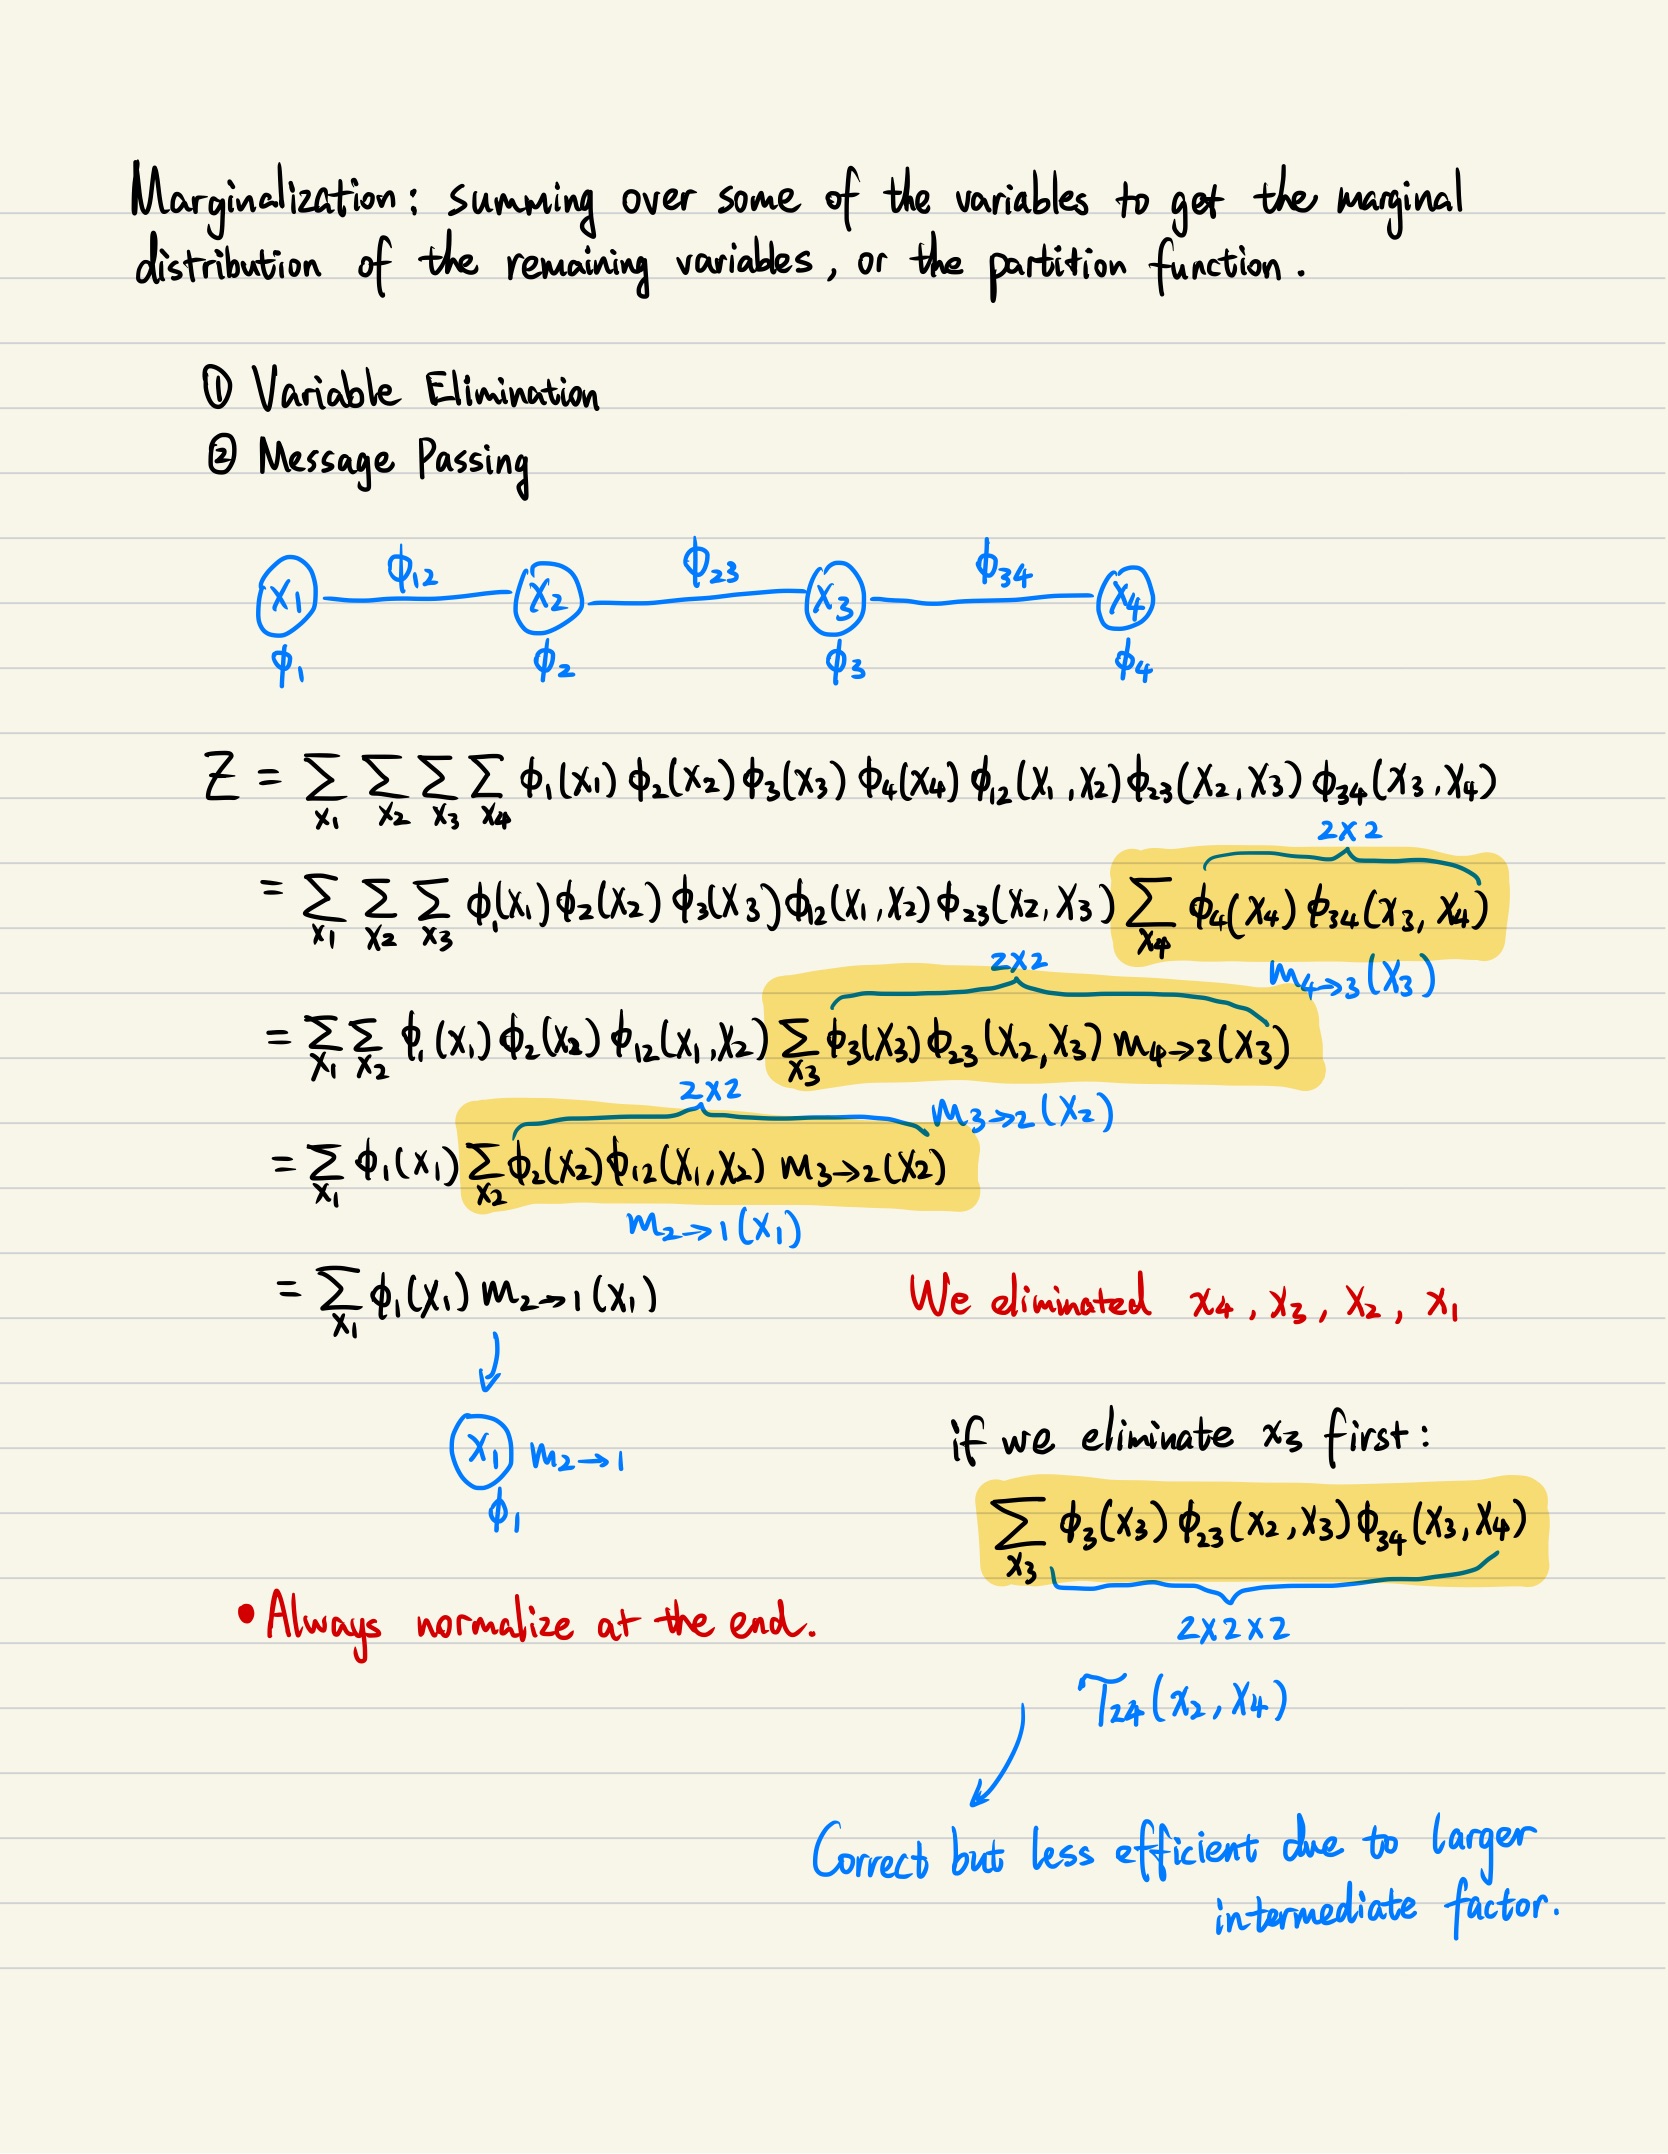 Marginalization: summing over some of the variables to get the marginal
distribution of the remaining variables, or the partition function.
① Variable Elimination
② Message Passing
ϕ₁₂ ϕ₂₃ ϕ₃₄
X₁ X₂ X₃ X₄
ϕ₁ ϕ₂ ϕ₃ ϕ₄
Z = ∑_{X₁} ∑_{X₂} ∑_{X₃} ∑_{X₄} ϕ₁(X₁) ϕ₂(X₂) ϕ₃(X₃) ϕ₄(X₄) ϕ₁₂(X₁,X₂) ϕ₂₃(X₂,X₃) ϕ₃₄(X₃,X₄)
2×2
= ∑_{X₁} ∑_{X₂} ∑_{X₃} ϕ₁(X₁) ϕ₂(X₂) ϕ₃(X₃) ϕ₁₂(X₁,X₂) ϕ₂₃(X₂,X₃) ∑_{X₄} ϕ₄(X₄) ϕ₃₄(X₃,X₄)
2×2 m₄→₃(X₃)
= ∑_{X₁} ∑_{X₂} ϕ₁(X₁) ϕ₂(X₂) ϕ₁₂(X₁,X₂) ∑_{X₃} ϕ₃(X₃) ϕ₂₃(X₂,X₃) m₄→₃(X₃)
2×2 m₃→₂(X₂)
= ∑_{X₁} ϕ₁(X₁) ∑_{X₂} ϕ₂(X₂) ϕ₁₂(X₁,X₂) m₃→₂(X₂)
m₂→₁(X₁)
= ∑_{X₁} ϕ₁(X₁) m₂→₁(X₁)
We eliminated x₄, x₃, x₂, x₁
X₁ m₂→₁
ϕ₁
if we eliminate x₃ first:
∑_{X₃} ϕ₃(X₃) ϕ₂₃(X₂,X₃) ϕ₃₄(X₃,X₄)
2×2×2
• Always normalize at the end.
T₂₄(X₂,X₄)
Correct but less efficient due to larger
intermediate factor.